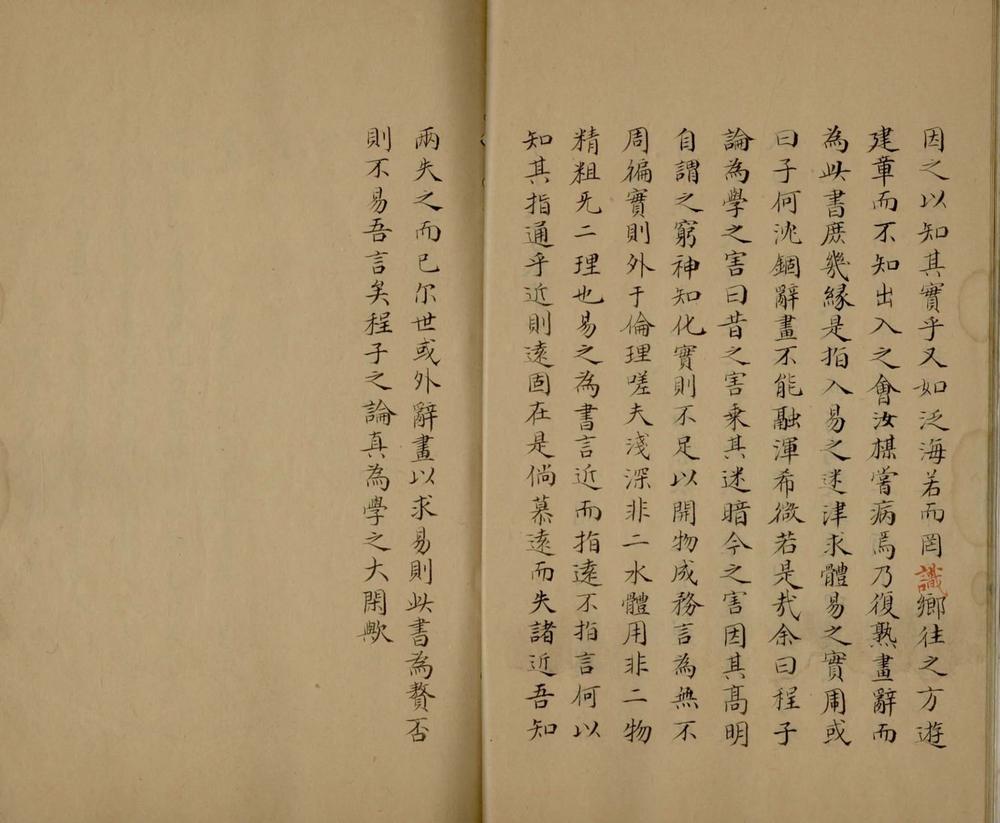 因之以知其實乎又如泛海若而罔識鄉往之方遊
建章而不知出入之會汝楳嘗病焉乃復熟畫辭而
為此書庶幾緣是指入易之迷津求體易之實用或
曰子何沈錮辭畫不能融渾希微若是㢤余曰程子
論為學之害曰昔之害乗其迷暗今之害因其髙明
自謂之窮神知化實則不足以開物成務言為無不
周徧實則外于倫理嗟夫淺深非二水體用非二物
精粗旡二理也易之為書言近而指逺不指言何以
知其指通乎近則逺固在是倘慕逺而失諸近吾知
兩失之而已尔世或外辭畫以求易則此書為贅否
則不易吾言矣程子之論真為學之大閑歟